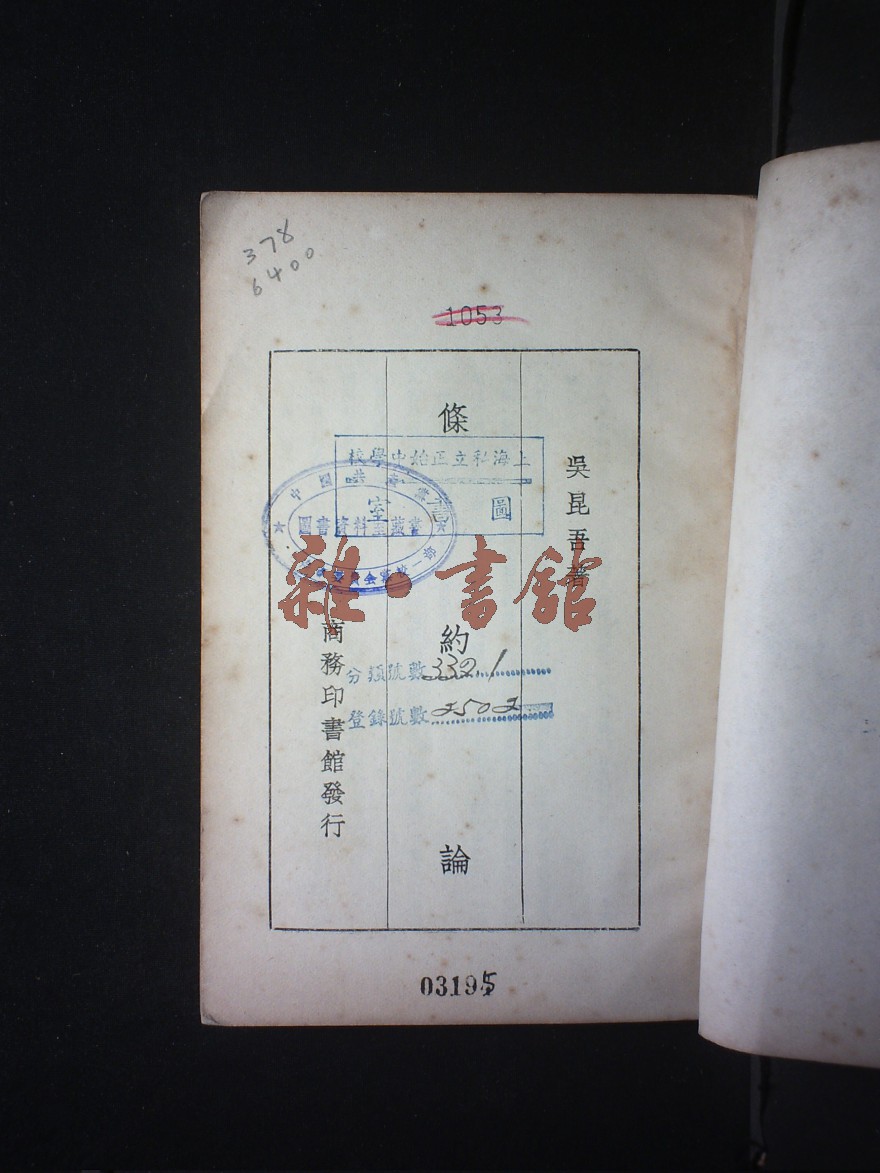 378
6400
1053
吳昆吾著
條約論
商務印書館發行
上海私立正始中學校
圖書室
分類號數332.1
登錄號數2502
圖書資料室藏書
雜·書館
03195